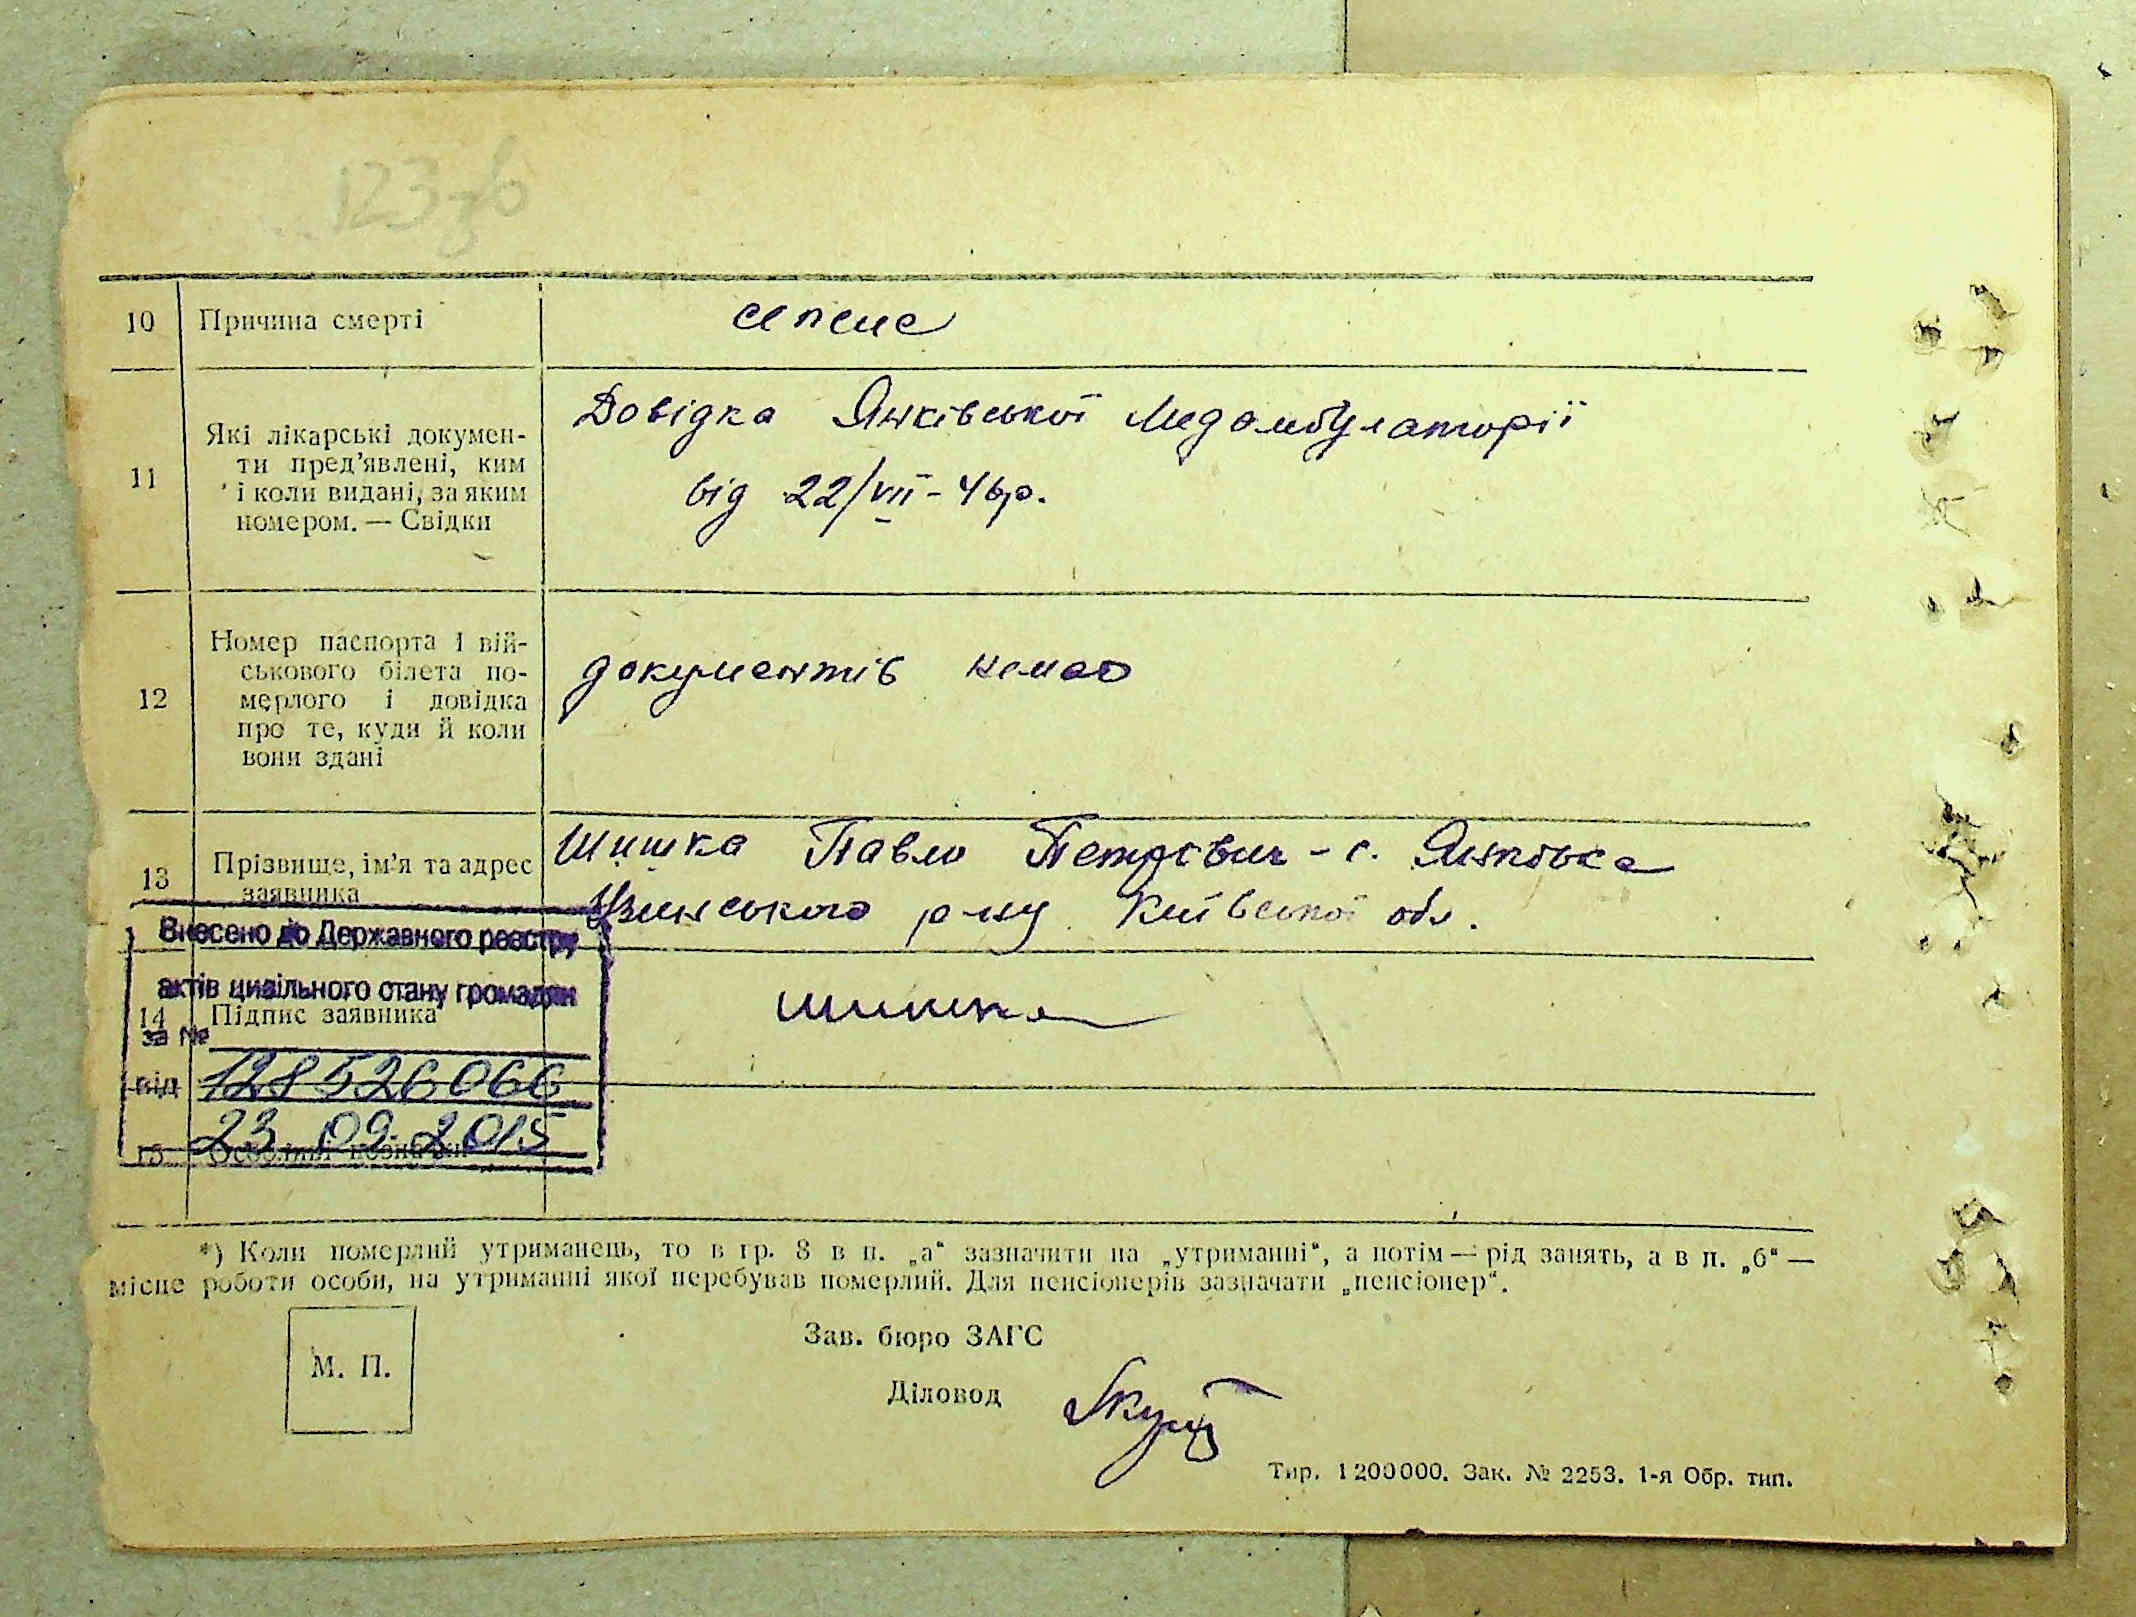 123зв
10 Причина смерті сепсис
11 Які лікарські докумен-
ти пред'явлені, ким
і коли видані, за яким
номером. — Свідки
Довідка Янківської Медамбулаторії
від 22/VII - 46р.
12 Номер паспорта і вій-
ськового білета по-
мерлого і довідка
про те, куди й коли
вони здані
документів немає
13 Прізвище, ім'я та адрес
заявника
Шишка Павло Петрович - с. Янківка
р-ну Київської обл.
Внесено до Державного реєстру
актів цивільного стану громадян
14 Підпис заявника Шишка
за №
від 128526066
23 09. 2015
15 Особливі
*) Коли померлий утриманець, то в гр. 8 в п. „а“ зазначити на „утриманні“, а потім — рід занять, а в п. „б“ —
місце роботи особи, на утриманні якої перебував померлий. Для пенсіонерів зазначати „пенсіонер“.
М. П.
Зав. бюро ЗАГС
Діловод
Тир. 1200000. Зак. № 2253. 1-я Обр. тип.